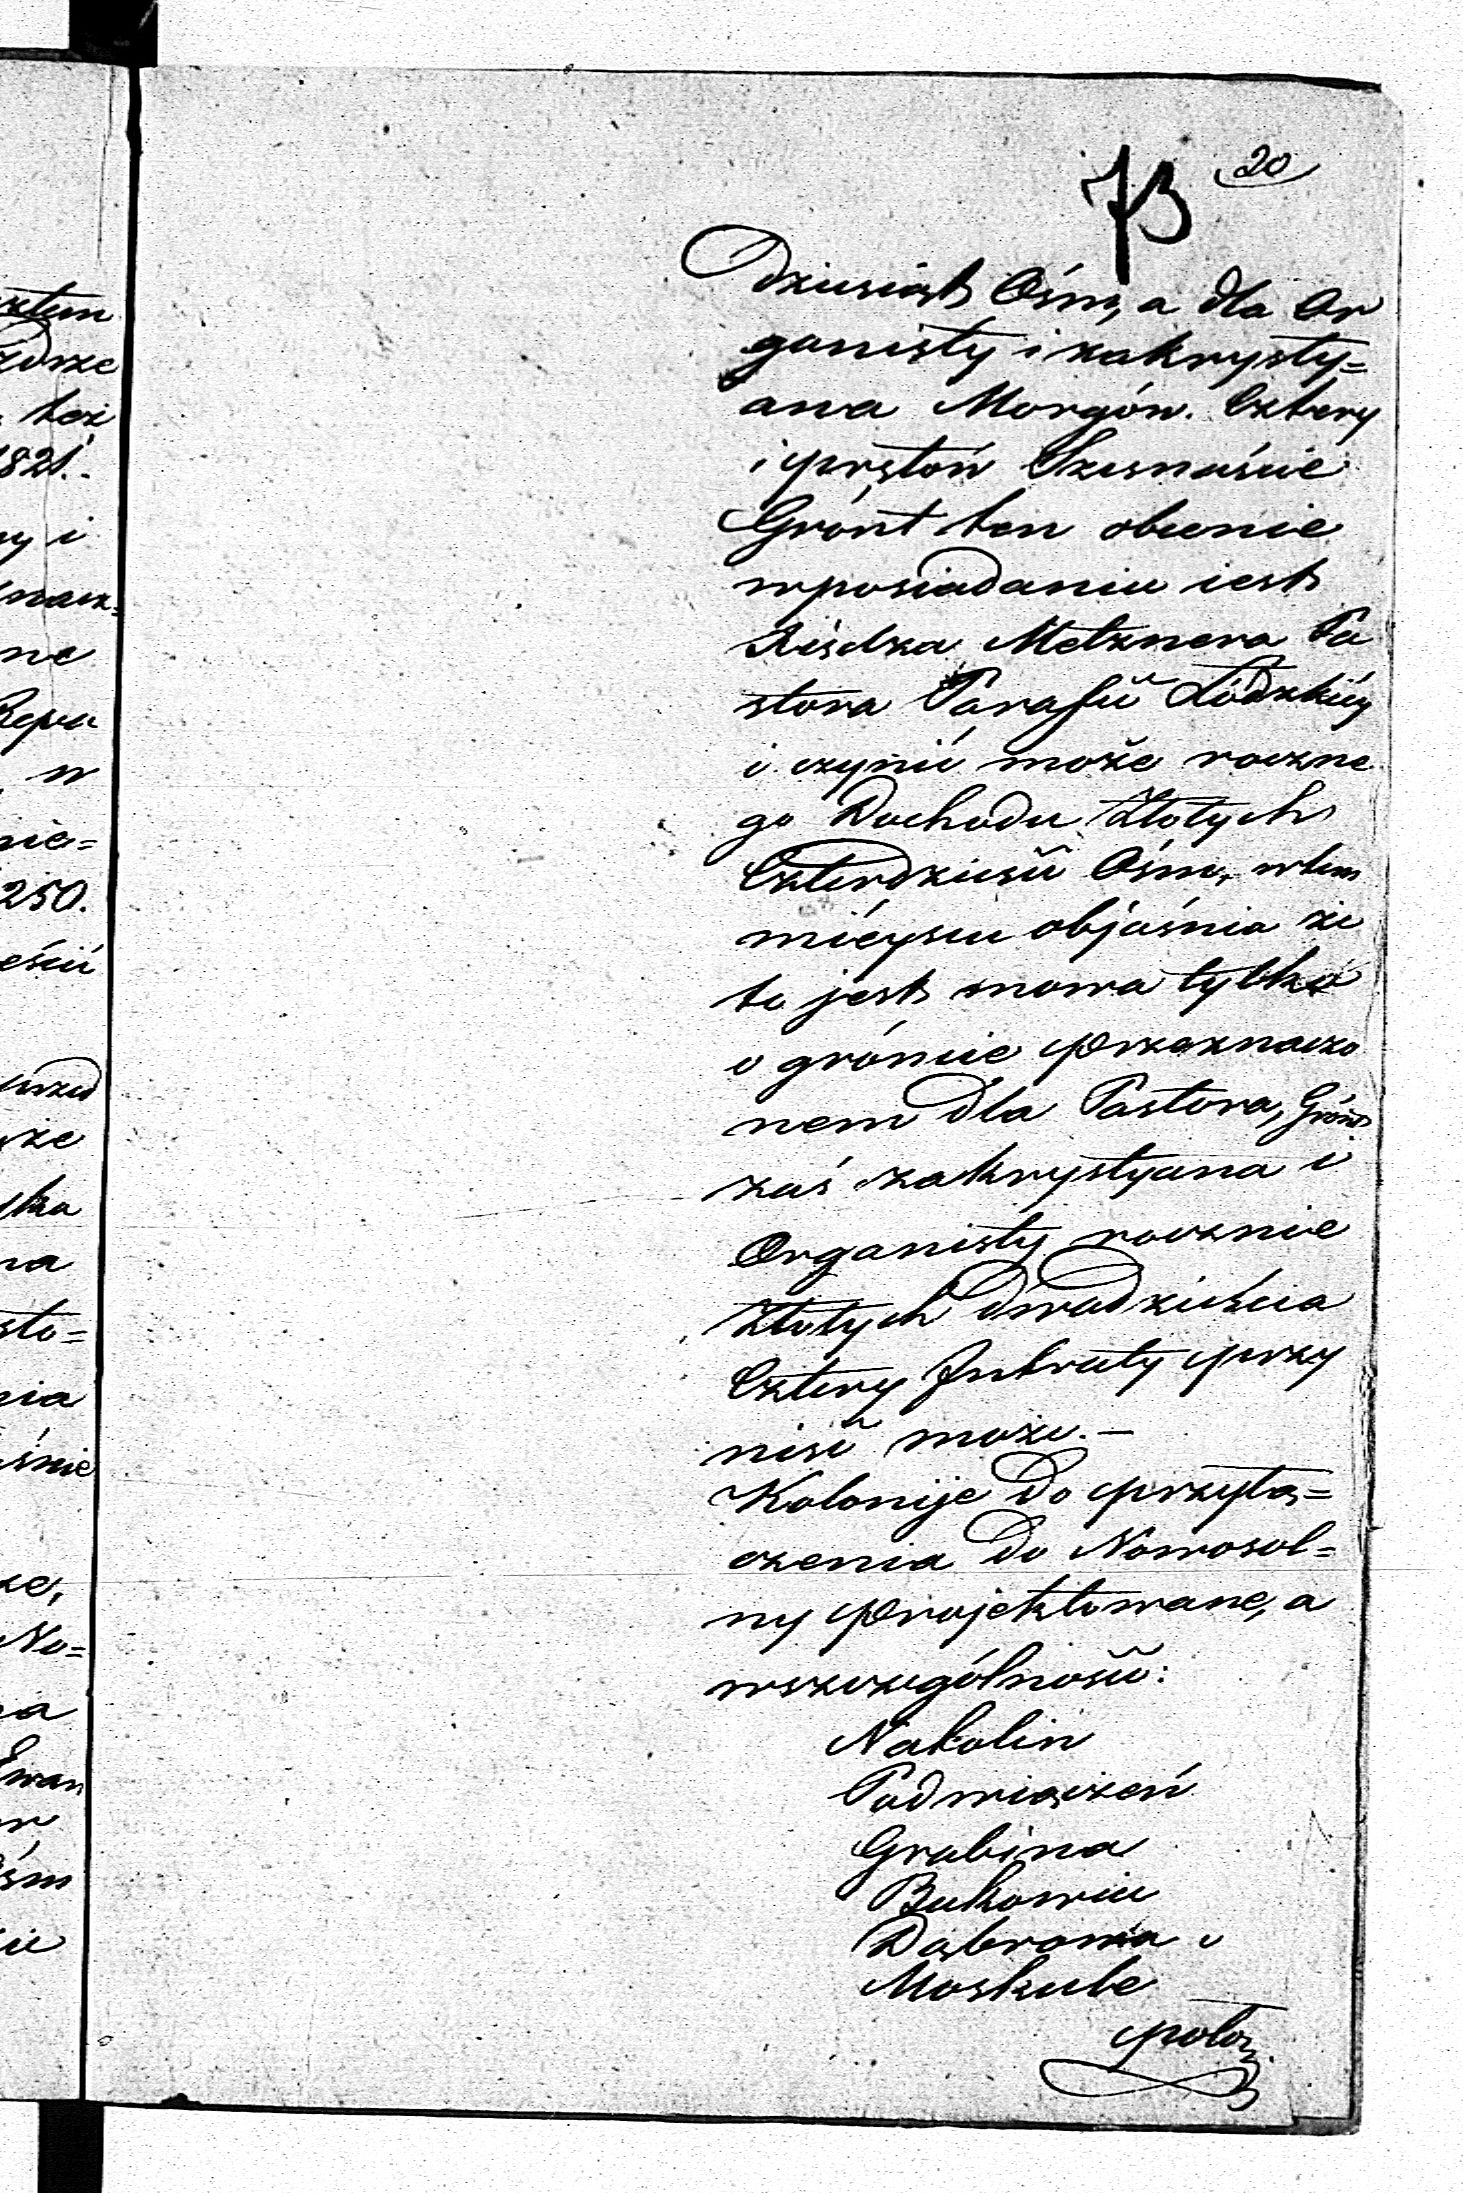 20
73
dziesiąt Ośm, a dla Or
ganisty i zakrysty=
ana Morgów. Cztery
i prętów Szesnaście
Grónt ten obecnie
wposiadaniu iest
Xiędza Metznera Pa
stora Parafii Łódzkiéy
i czynić może roczne
go Dochodu Złotych
Czterdzieści Ośm, wtem
miéyscu objaśnia że
tu jest mowa tylko
o gróncie przeznaczo
nem dla Pastora, Grónt
zaś zakrystyana i
Organisty rocznie
Złotych dwadzieścia
Cztery Intraty przy
nieść może.—
Kolonije do przyłą=
czenia do Nowosol=
ny projektowane, a
wszczególności:
Nakolin
Podwiączeń
Grabina
Bukowiec
Dąbrowa i
Moskule
położ
ztem
też
1821.
y i
znacz=
ne
w
nie=
250.
eści
że
ska
na
sto=
nia
śnie
ze,
No=
na
Ewan
ośm